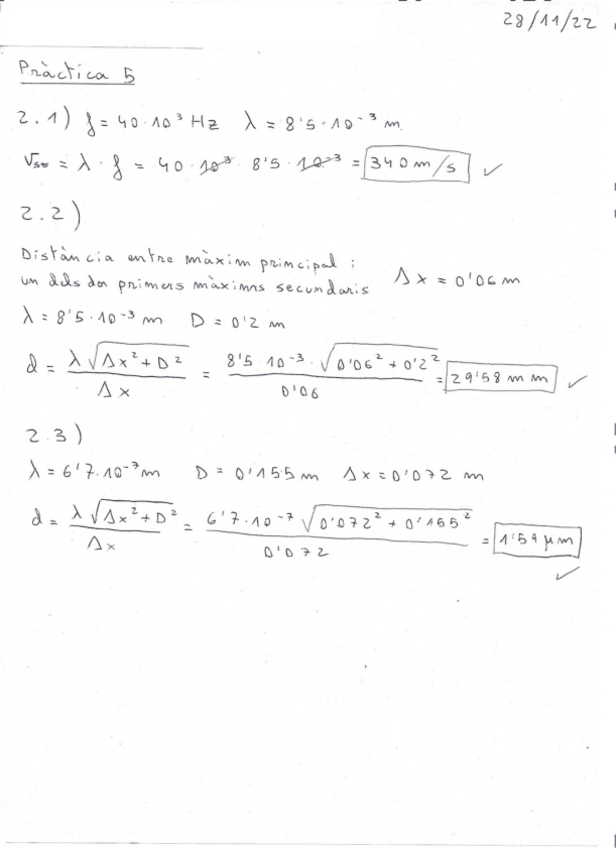 28/11/22
Pràctica 5
2.1) f = 40·10³ Hz λ = 8'5·10⁻³ m
Vso = λ · f = 40·10³ 8'5·10⁻³ = 340 m/s ✓
2.2)
Distància entre màxim principal i
un dels dos primers màxims secundaris Δx = 0'06 m
λ = 8'5·10⁻³ m D = 0'2 m
d = λ √(Δx² + D²) / Δx = 8'5 10⁻³ · √(0'06² + 0'2²) / 0'06 = 29'58 mm ✓
2.3)
λ = 6'7·10⁻⁷ m D = 0'155 m Δx = 0'072 m
d = λ √(Δx² + D²) / Δx = 6'7·10⁻⁷ √(0'072² + 0'155²) / 0'072 = 1'59 μm
✓